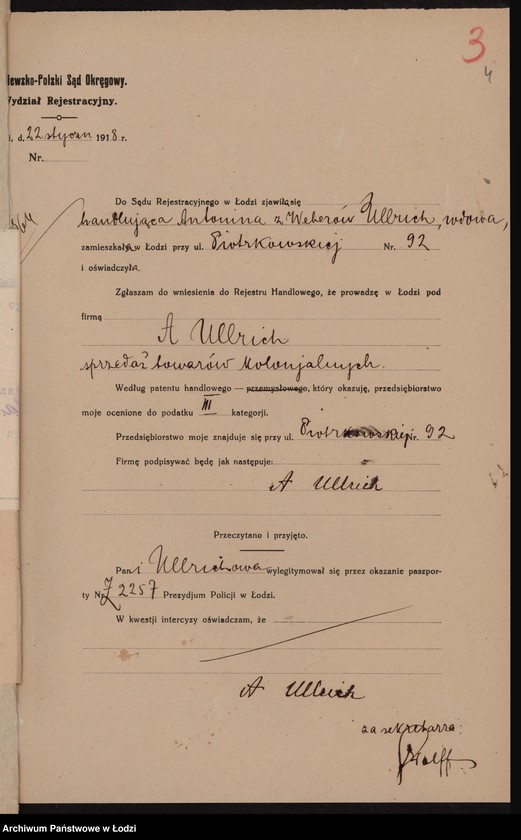 3
4
lewsko-Polski Sąd Okręgowy.
Wydział Rejestracyjny.
i, d. 22 styczn 1918 r.
Nr.
Do Sądu Rejestracyjnego w Łodzi zjawiła się
handlująca Antonina z Weberów Ullrich, wdowa,
zamieszkała w Łodzi przy ul. Piotrkowskiej Nr. 92
i oświadczyła.
Zgłaszam do wniesienia do Rejestru Handlowego, że prowadzę w Łodzi pod
firmą
A Ullrich
sprzedaż towarów kolonjalnych.
Według patentu handlowego — przemysłowego, który okazuję, przedsiębiorstwo
moje ocenione do podatku III kategorji.
Przedsiębiorstwo moje znajduje się przy ul. Piotrkowskiej Nr. 92
Firmę podpisywać będę jak następuje:
A Ullrich
Przeczytano i przyjęto.
Pani Ullrichowa wylegitymował się przez okazanie paszpor-
ty Nr 2257 Prezydjum Policji w Łodzi.
W kwestji intercyzy oświadczam, że
A Ullrich
za sekretarza:
Archiwum Państwowe w Łodzi